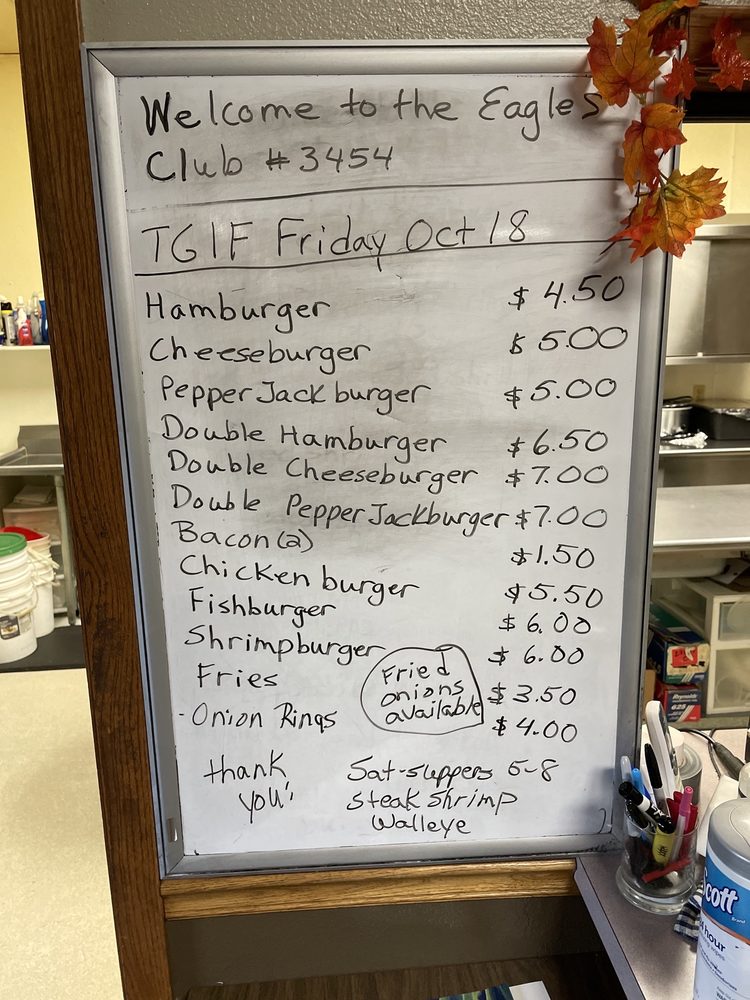 Welcome to the Eagles
Club #3454
TGIF Friday Oct 18
Hamburger $4.50
Cheeseburger $5.00
Pepper Jack burger $5.00
Double Hamburger $6.50
Double Cheeseburger $7.00
Double Pepper Jackburger $7.00
Bacon (2) $1.50
Chicken burger $5.50
Fishburger $6.00
Shrimpburger $6.00
Fries $3.50
Onion Rings $4.00
Fried
onions
available
thank
you!
Sat-suppers 5-8
steak shrimp
Walleye
Scott
Reynolds
625